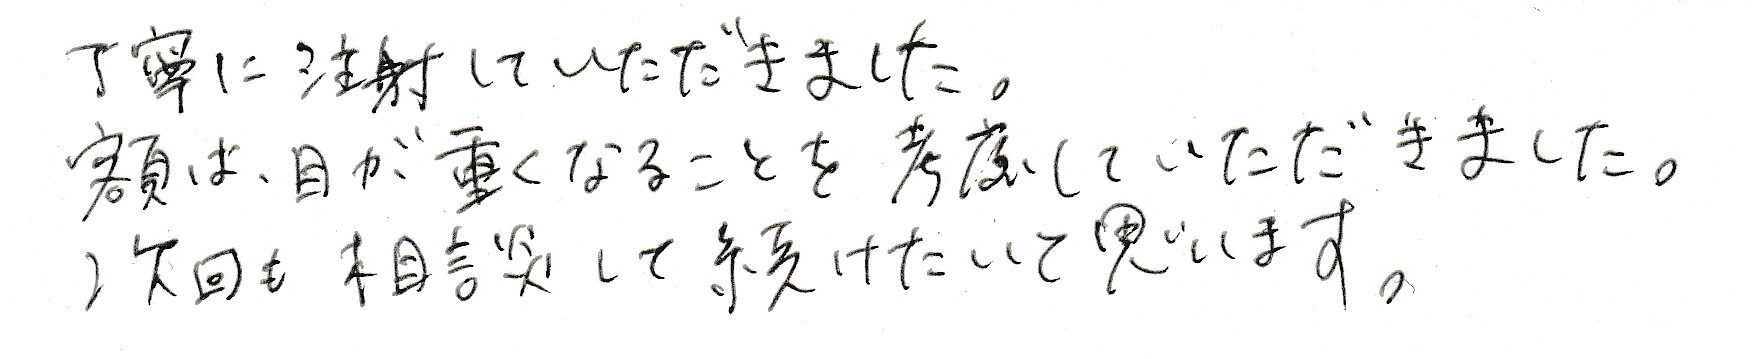 丁寧に注射していただきました。
額は、目が重くなることを考慮していただきました。
次回も相談して続けたいと思います。